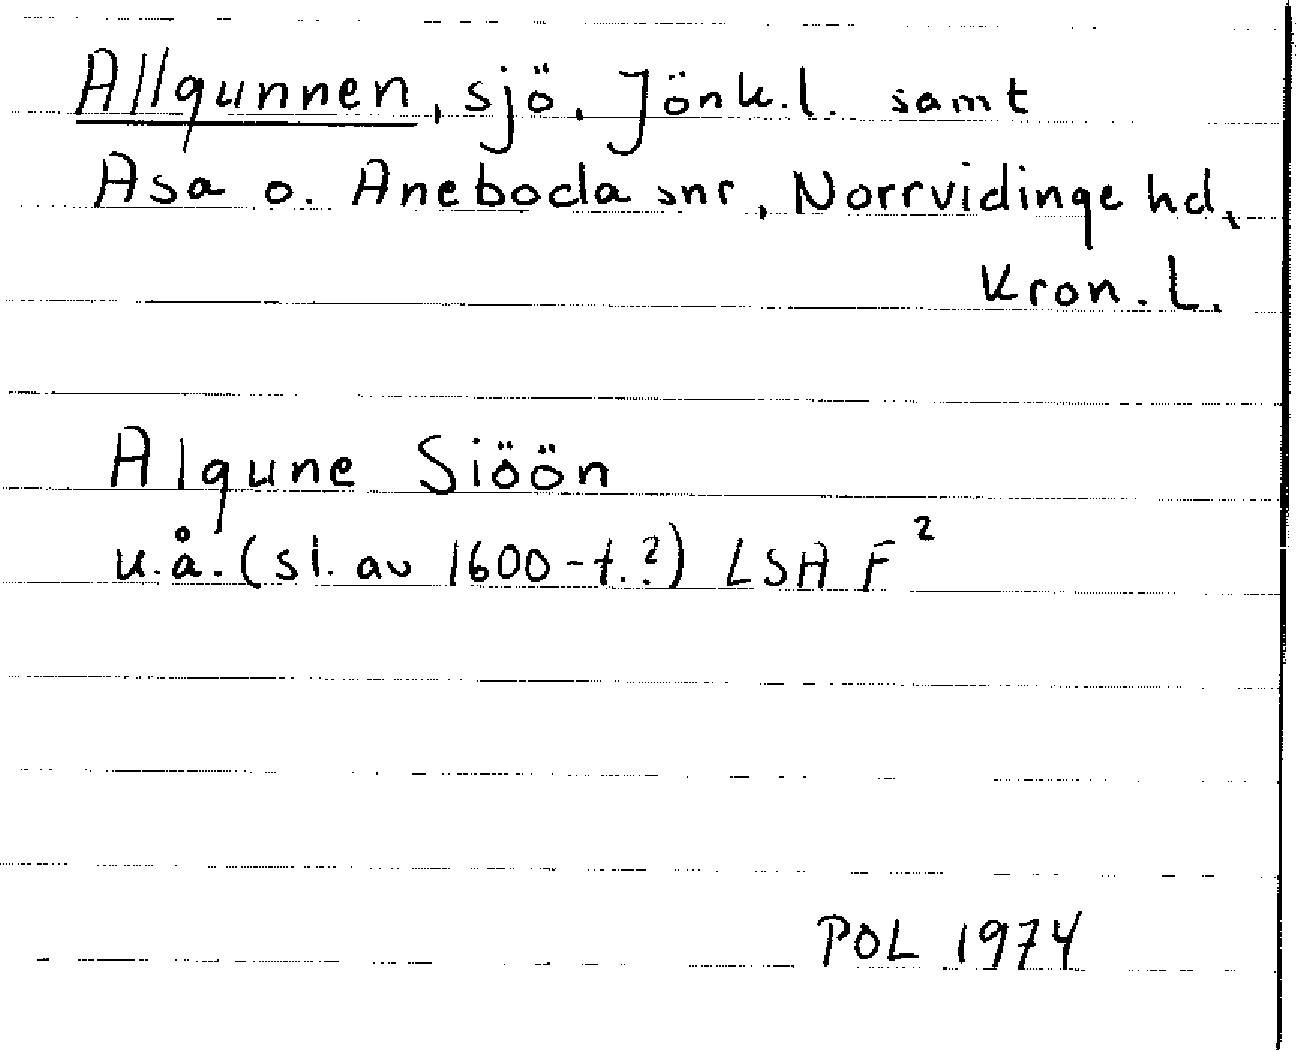 Allgunnen, sjö, Jönk.l. samt
Asa o. Aneboda snr, Norrvidinge hd,
Kron. L.
Algune Siöön
u.å. (sl. av 1600-t.?) LSA F²
POL 1974